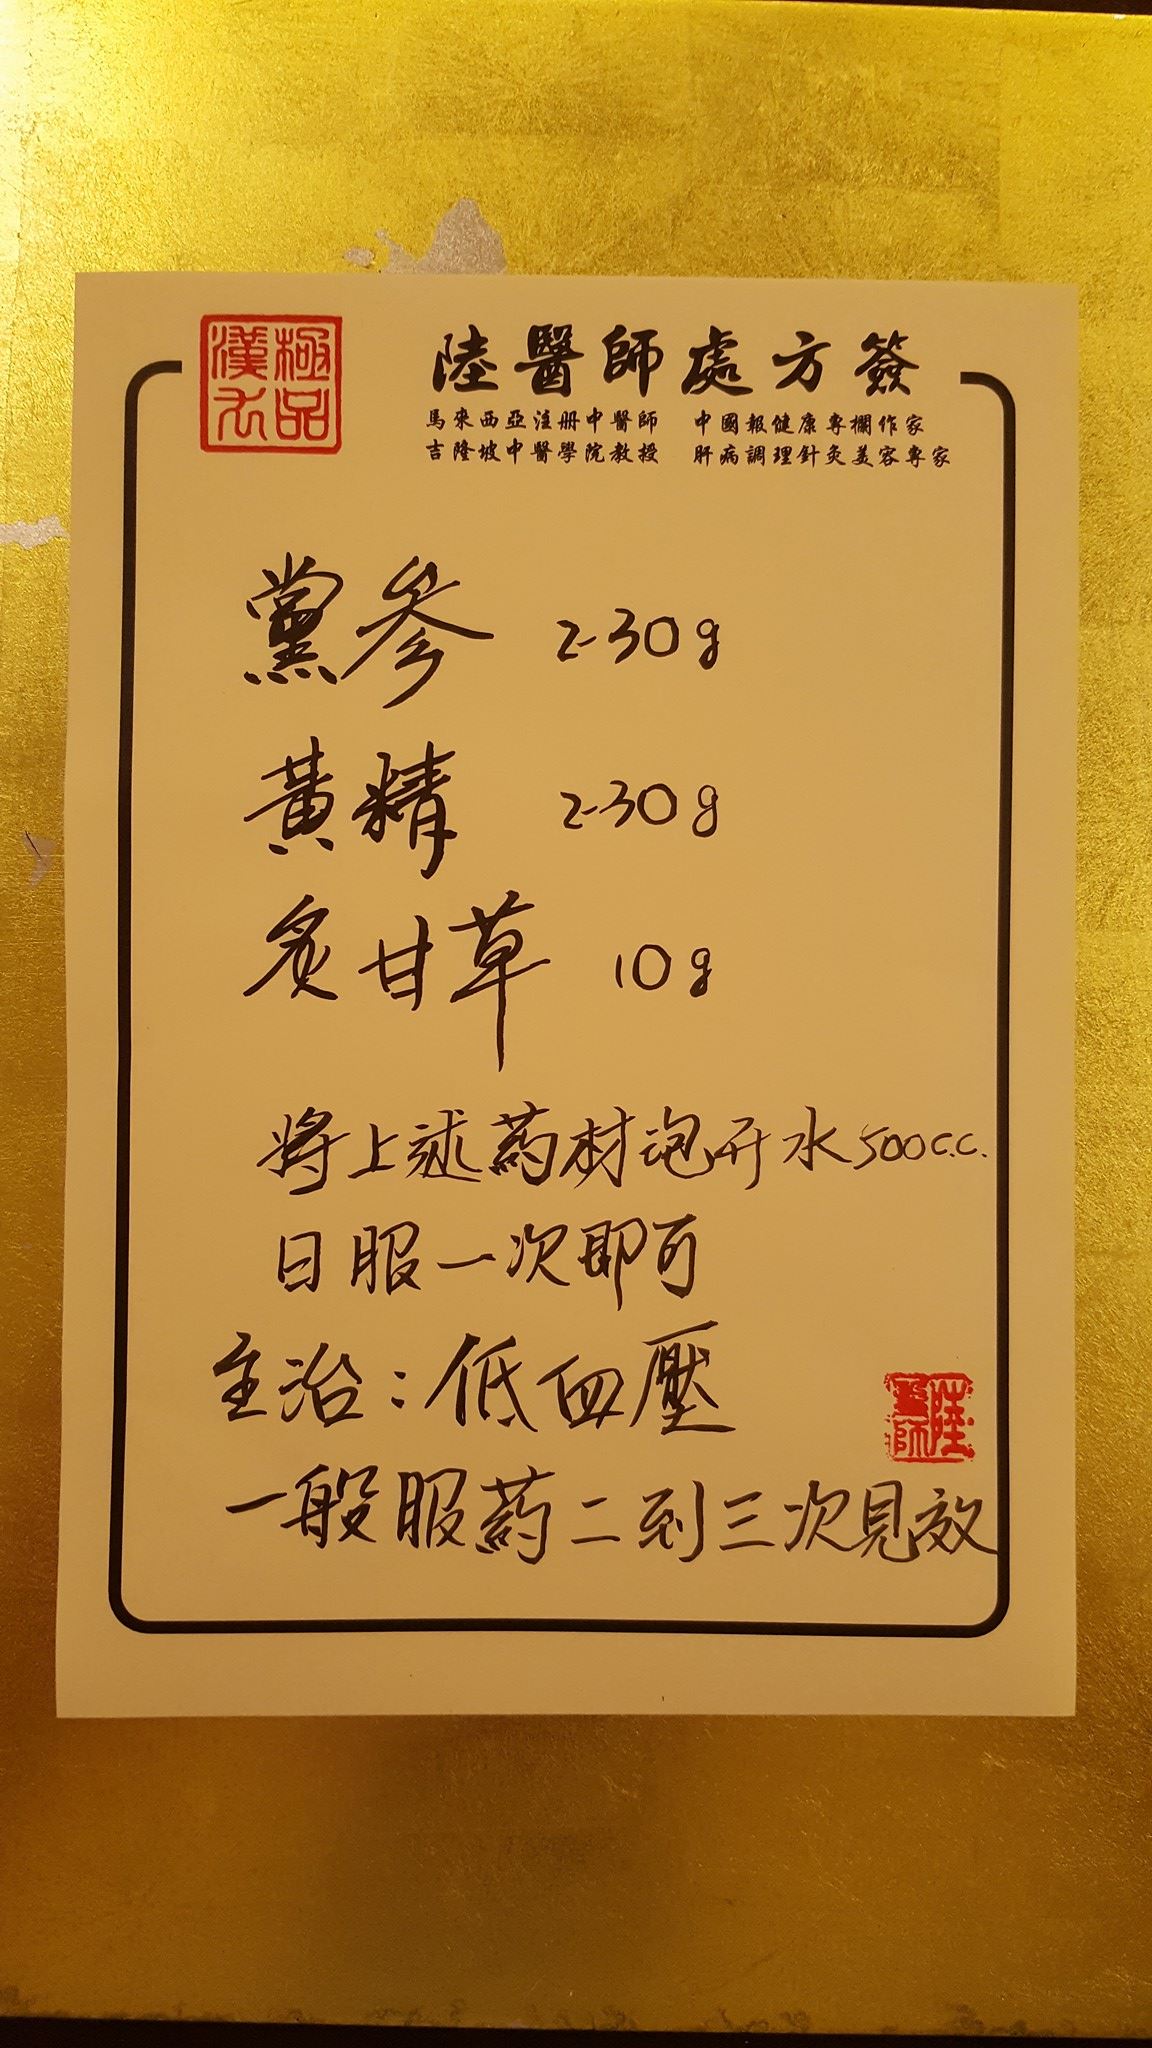 極品
漢方
陸醫師處方簽
馬來西亞注冊中醫師 中國報健康專欄作家
吉隆坡中醫學院教授 肝病調理針灸美容專家
黨參 2-30g
黃精 2-30g
炙甘草 10g
將上述药材泡开水500c.c.
日服一次即可
主治：低血壓
陸醫師
一般服药二到三次見效